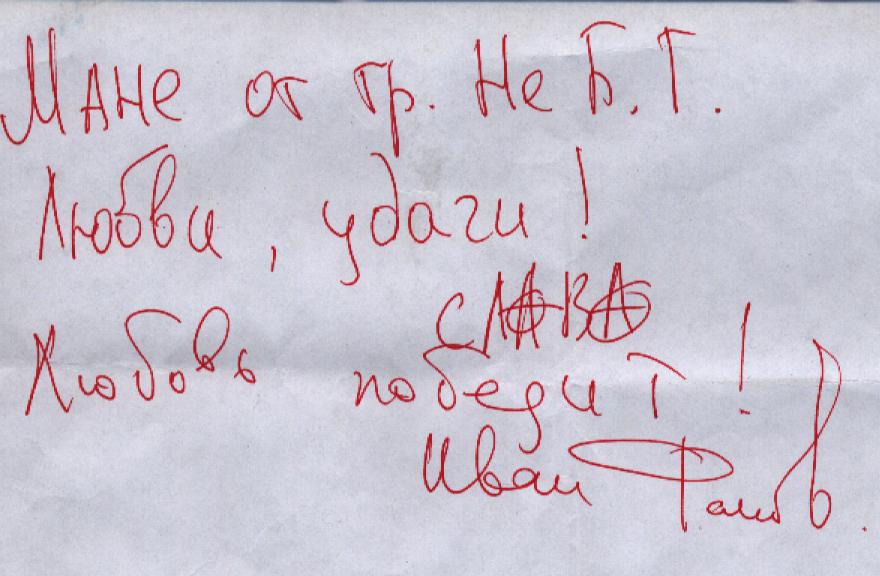 Мане от гр. Не Б.Т.
Любви, удачи!
СЛАВА
Любовь победит!
Иван